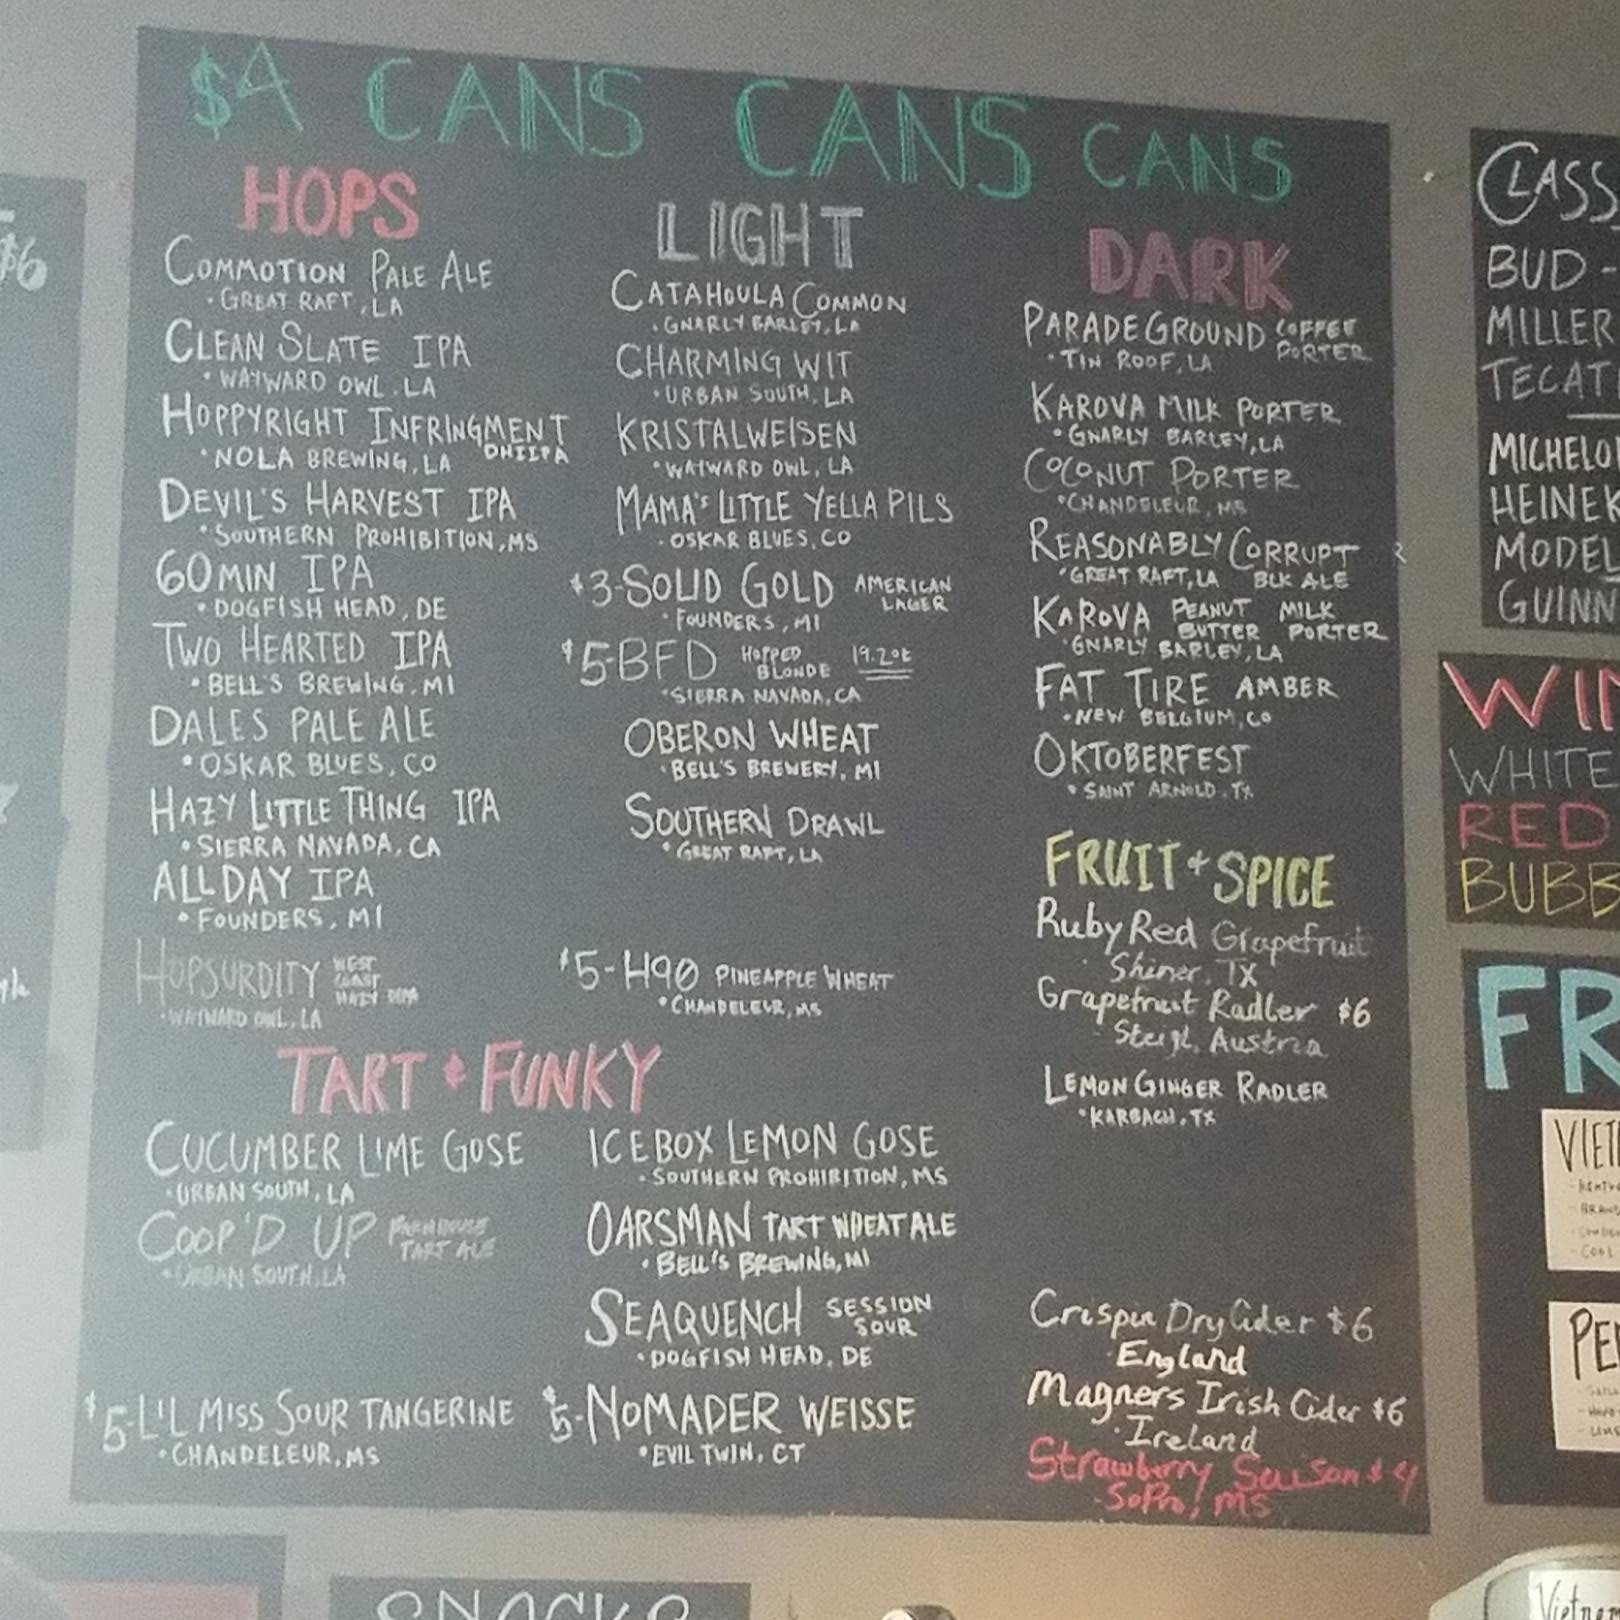 $4 CANS CANS CANS
HOPS
COMMOTION PALE ALE
• GREAT RAFT, LA
CLEAN SLATE IPA
• WAYWARD OWL, LA
HOPPYRIGHT INFRINGMENT
• NOLA BREWING, LA
DEVIL'S HARVEST IPA
• SOUTHERN PROHIBITION, MS
60 MIN IPA
• DOGFISH HEAD, DE
TWO HEARTED IPA
• BELL'S BREWING, MI
DALES PALE ALE
• OSKAR BLUES, CO
HAZY LITTLE THING IPA
• SIERRA NAVADA, CA
ALL DAY IPA
• FOUNDERS, MI
HOPSURDITY WEST
COAST
HAZY
• WAYWARD OWL, LA
LIGHT
CATAHOULA COMMON
• GNARLY BARLEY, LA
CHARMING WIT
• URBAN SOUTH, LA
KRISTALWEISEN
• WAYWARD OWL, LA
MAMA'S LITTLE YELLA PILS
• OSKAR BLUES, CO
$3-SOLID GOLD AMERICAN
LAGER
• FOUNDERS, MI
$5-BFD HOPPED
BLONDE 19.2oz
• SIERRA NAVADA, CA
OBERON WHEAT
• BELL'S BREWERY, MI
SOUTHERN DRAWL
• GREAT RAFT, LA
$5-H90 PINEAPPLE WHEAT
• CHANDELEUR, MS
DARK
PARADEGROUND COFFEE
PORTER
• TIN ROOF, LA
KAROVA MILK PORTER
• GNARLY BARLEY, LA
COCONUT PORTER
• CHANDELEUR, MS
REASONABLY CORRUPT
• GREAT RAFT, LA BLK ALE
KAROVA PEANUT MILK
BUTTER PORTER
• GNARLY BARLEY, LA
FAT TIRE AMBER
• NEW BELGIUM, CO
OKTOBERFEST
• SAINT ARNOLD, TX
FRUIT + SPICE
Ruby Red Grapefruit
• Shiner, TX
Grapefruit Radler $6
• Steigl, Austria
LEMON GINGER RADLER
• KARBACH, TX
Crispin Dry Cider $6
• England
Magners Irish Cider $6
• Ireland
Strawberry Saison $4
- SoPro, MS
TART + FUNKY
CUCUMBER LIME GOSE
• URBAN SOUTH, LA
COOP'D UP FARMHOUSE
TART ALE
• URBAN SOUTH, LA
$5-LI'L MISS SOUR TANGERINE
• CHANDELEUR, MS
ICEBOX LEMON GOSE
• SOUTHERN PROHIBITION, MS
OARSMAN TART WHEAT ALE
• BELL'S BREWING, MI
SEAQUENCH SESSION
SOUR
• DOGFISH HEAD, DE
$5-NOMADER WEISSE
• EVIL TWIN, CT
$6
CLASS
BUD -
MILLER
TECAT
MICHELO
HEINEK
MODEL
GUINN
WIN
WHITE
RED
BUBB
FR
VIET
PE
SNACKS
Vietna